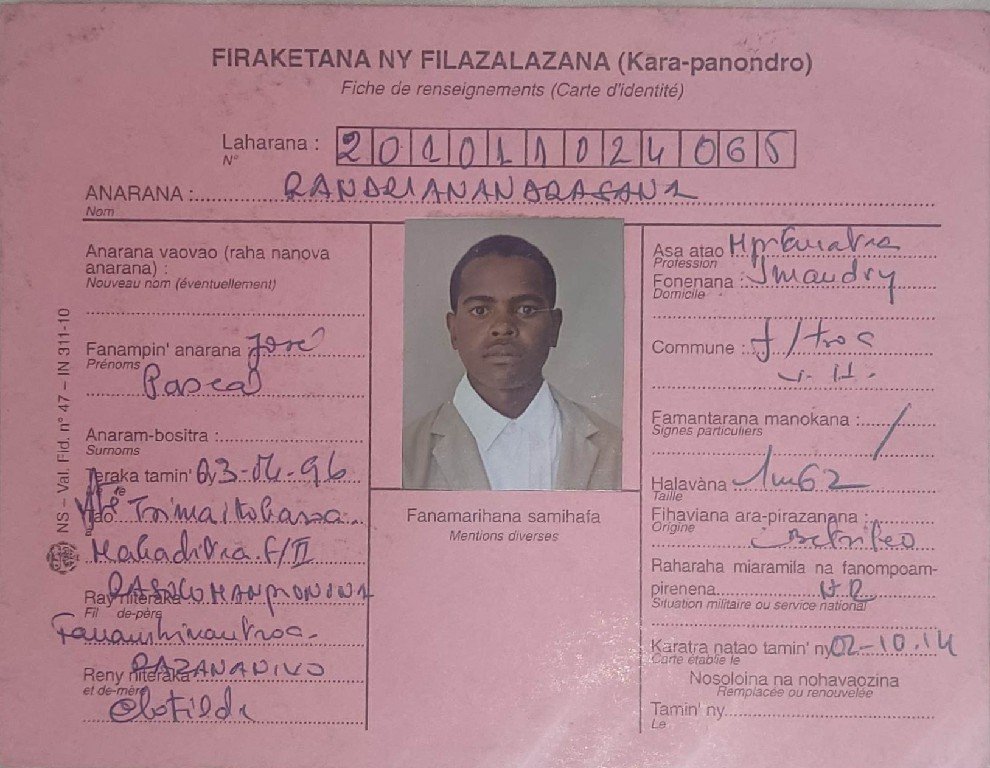 FIRAKETANA NY FILAZALAZANA (Kara-panondro)
Fiche de renseignements (Carte d'identité)
Laharana : 201011024065
N°
ANARANA :
Nom
Anarana vaovao (raha nanova
anarana) :
Nouveau nom (éventuellement)
Fanampin' anarana José
Prénoms
Pascal
Anaram-bositra :
Surnoms
Teraka tamin' ny 03-04-96
tao
Ray niteraka
Fil de-père
Reny niteraka RAZANANIVO
et de-mère
Clotilde
NS – Val. Fid. n° 47 – IN 311-10
Fanamarihana samihafa
Mentions diverses
Asa atao Mpianatra
Profession
Fonenana : Imandry
Domicile
Commune :
Famantarana manokana : /
Signes particuliers
Halavàna 1m62
Taille
Fihaviana ara-pirazanana :
Origine
Betsileo
Raharaha miaramila na fanompoam-
pirenena
Situation militaire ou service national
Karatra natao tamin' ny 02-10-14
Carte établie le
Nosoloina na nohavaozina
Remplacée ou renouvelée
Tamin' ny
Le